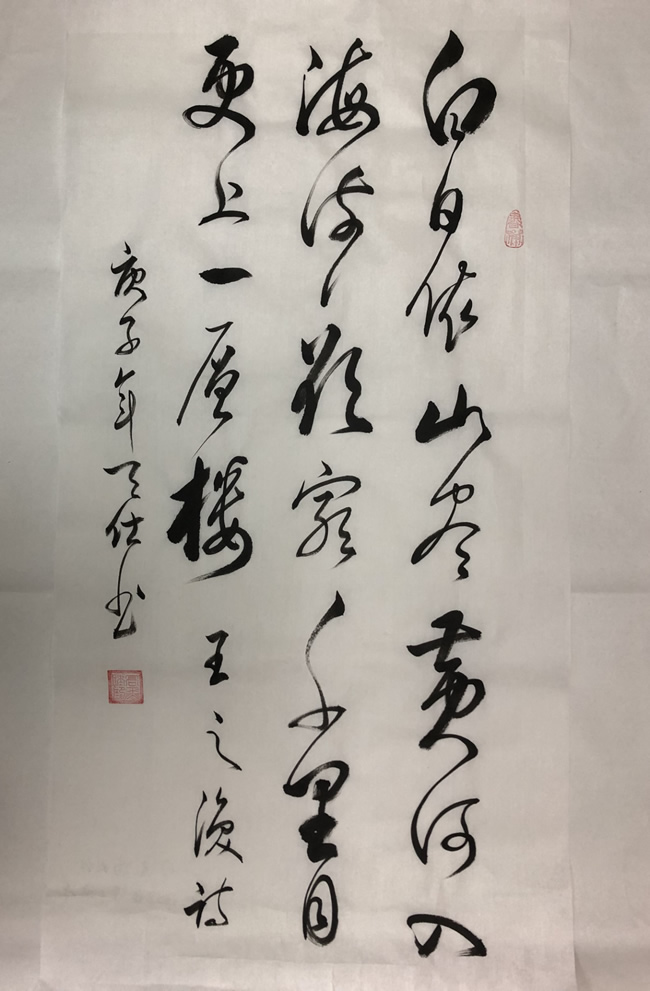 白日依山尽黄河入
海流欲穷千里目
更上一层楼 王之涣诗
庚子年天仕书